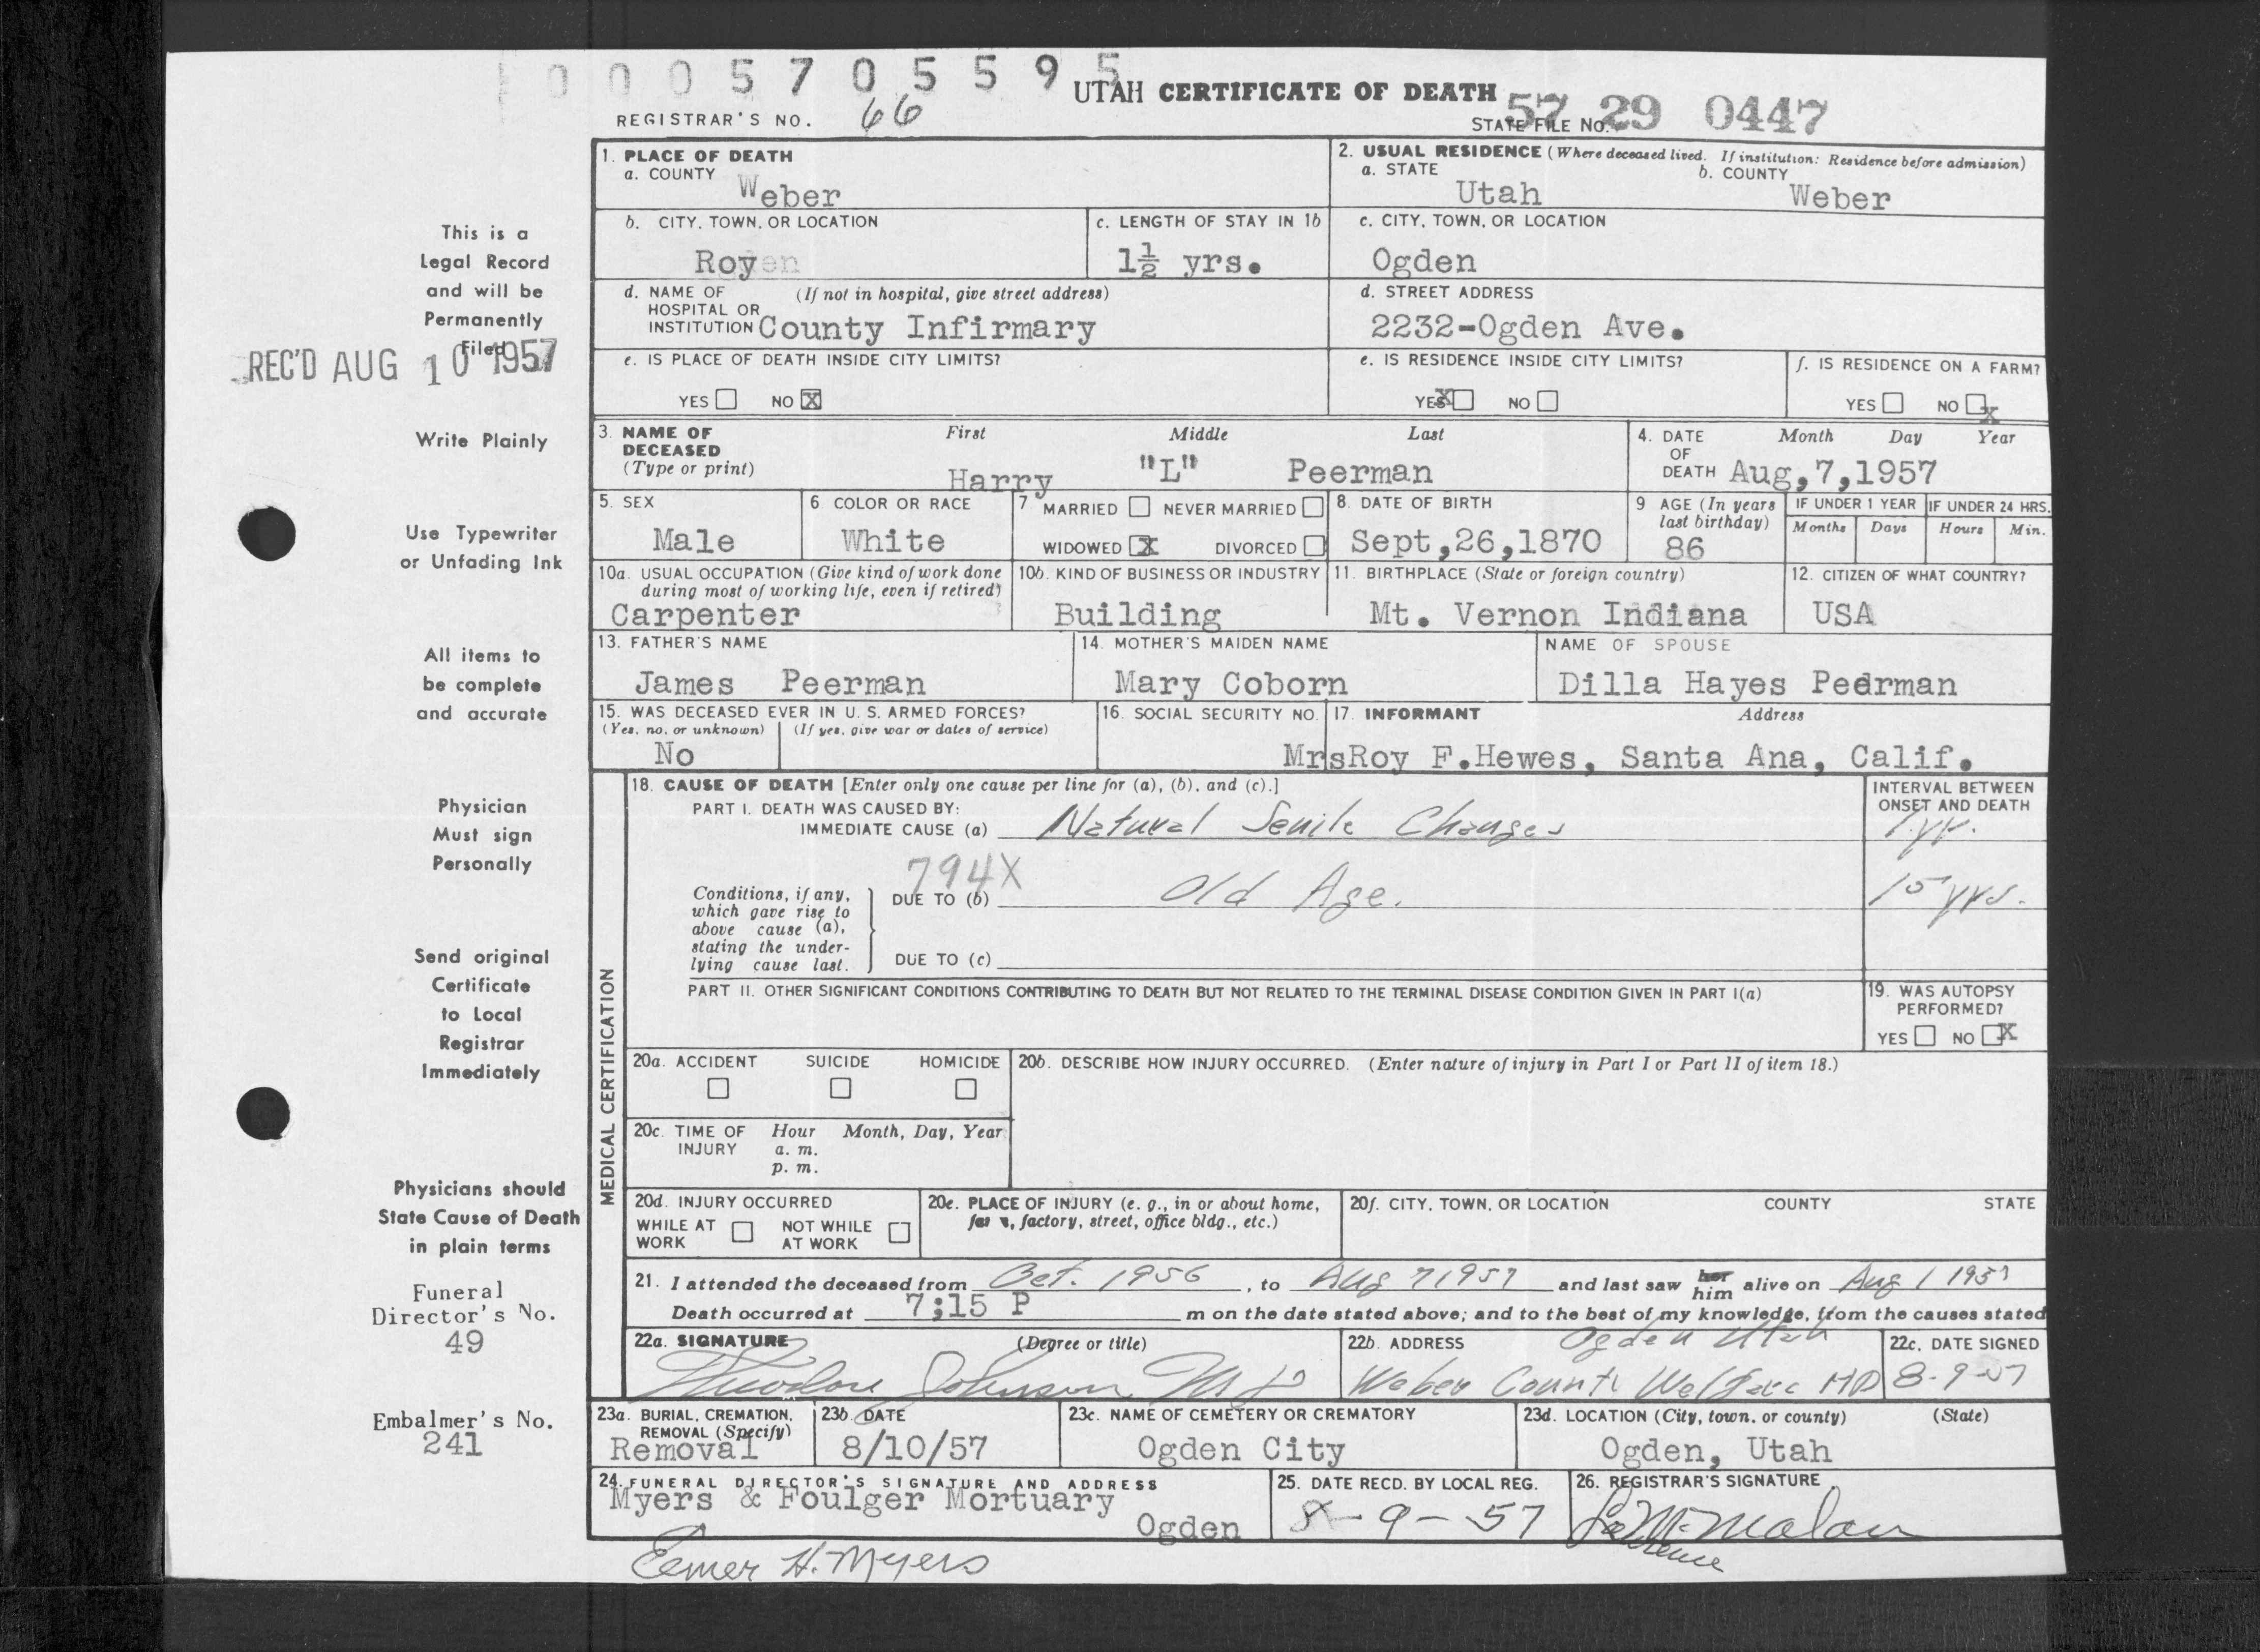 0 0 0 5 7 0 5 5 9 5
UTAH CERTIFICATE OF DEATH
REGISTRAR'S NO. 66
STATE FILE NO. 57 29 0447
1. PLACE OF DEATH
a. COUNTY Weber
2. USUAL RESIDENCE (Where deceased lived. If institution: Residence before admission)
a. STATE Utah b. COUNTY Weber
b. CITY, TOWN, OR LOCATION Roy
c. LENGTH OF STAY IN 1b 1½ yrs.
c. CITY, TOWN, OR LOCATION Ogden
d. NAME OF HOSPITAL OR INSTITUTION (If not in hospital, give street address) County Infirmary
d. STREET ADDRESS 2232-Ogden Ave.
e. IS PLACE OF DEATH INSIDE CITY LIMITS?
YES NO X
e. IS RESIDENCE INSIDE CITY LIMITS?
YES X NO
f. IS RESIDENCE ON A FARM?
YES NO X
3. NAME OF DECEASED (Type or print) First Middle Last
Harry "L" Peerman
4. DATE OF DEATH Month Day Year
Aug,7,1957
5. SEX Male
6 COLOR OR RACE White
7 MARRIED NEVER MARRIED
WIDOWED X DIVORCED
8. DATE OF BIRTH Sept,26,1870
9 AGE (In years last birthday) 86
IF UNDER 1 YEAR Months Days
IF UNDER 24 HRS. Hours Min.
10a. USUAL OCCUPATION (Give kind of work done during most of working life, even if retired)
Carpenter
10b. KIND OF BUSINESS OR INDUSTRY
Building
11. BIRTHPLACE (State or foreign country)
Mt. Vernon Indiana
12. CITIZEN OF WHAT COUNTRY?
USA
13. FATHER'S NAME
James Peerman
14. MOTHER'S MAIDEN NAME
Mary Coborn
NAME OF SPOUSE
Dilla Hayes Peerman
15. WAS DECEASED EVER IN U. S. ARMED FORCES?
(Yes, no, or unknown) (If yes, give war or dates of service)
No
16. SOCIAL SECURITY NO.
17. INFORMANT Address
MrsRoy F.Hewes, Santa Ana, Calif.
18. CAUSE OF DEATH [Enter only one cause per line for (a), (b), and (c).]
INTERVAL BETWEEN ONSET AND DEATH
PART I. DEATH WAS CAUSED BY:
IMMEDIATE CAUSE (a) Natural Senile Changes 1 yr.
794X
Conditions, if any, which gave rise to above cause (a), stating the underlying cause last.
DUE TO (b) Old Age. 15 yrs.
DUE TO (c)
PART II. OTHER SIGNIFICANT CONDITIONS CONTRIBUTING TO DEATH BUT NOT RELATED TO THE TERMINAL DISEASE CONDITION GIVEN IN PART I(a)
19. WAS AUTOPSY PERFORMED?
YES NO X
MEDICAL CERTIFICATION
20a. ACCIDENT SUICIDE HOMICIDE
20b. DESCRIBE HOW INJURY OCCURRED. (Enter nature of injury in Part I or Part II of item 18.)
20c. TIME OF INJURY Hour Month, Day, Year
a. m.
p. m.
20d. INJURY OCCURRED
WHILE AT WORK NOT WHILE AT WORK
20e. PLACE OF INJURY (e. g., in or about home, factory, street, office bldg., etc.)
20f. CITY, TOWN, OR LOCATION COUNTY STATE
21. I attended the deceased from Oct. 1956, to Aug 7 1957 and last saw her him alive on Aug 1 1957
Death occurred at 7;15 P m on the date stated above; and to the best of my knowledge, from the causes stated
22a. SIGNATURE (Degree or title)
Theodore Johnson MD
22b. ADDRESS Ogden Utah
Weber County Welfare MD
22c. DATE SIGNED
8-9-57
23a. BURIAL, CREMATION, REMOVAL (Specify)
Removal
23b. DATE
8/10/57
23c. NAME OF CEMETERY OR CREMATORY
Ogden City
23d. LOCATION (City, town, or county) (State)
Ogden, Utah
24. FUNERAL DIRECTOR'S SIGNATURE AND ADDRESS
Myers & Foulger Mortuary
Ogden
25. DATE RECD. BY LOCAL REG.
8-9-57
26. REGISTRAR'S SIGNATURE
Malan
Elmer H. Myers
This is a
Legal Record
and will be
Permanently
Filed
REC'D AUG 10 1957
Write Plainly
Use Typewriter
or Unfading Ink
All items to
be complete
and accurate
Physician
Must sign
Personally
Send original
Certificate
to Local
Registrar
Immediately
Physicians should
State Cause of Death
in plain terms
Funeral
Director's No.
49
Embalmer's No.
241